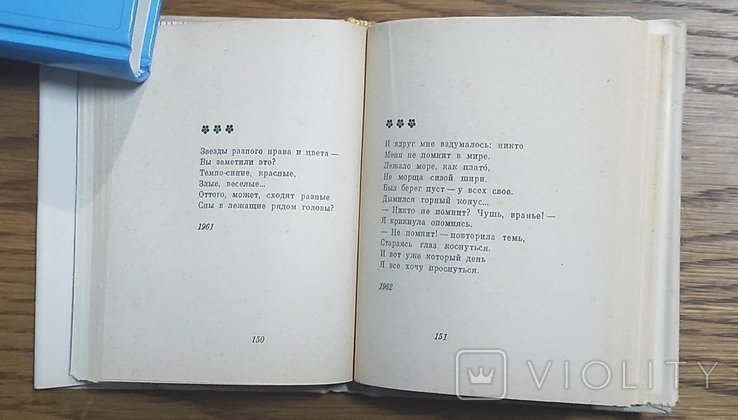 ✽ ✽ ✽
Звезды разного нрава и цвета —
Вы заметили это?
Темно-синие, красные,
Злые, веселые...
Оттого, может, сходят разные
Сны в лежащие рядом головы?
1961
150
✽ ✽ ✽
И вдруг мне вздумалось: никто
Меня не помнит в мире.
Лежало море, как плато́,
Не морща сизой шири.
Был берег пуст — у всех свое.
Дымился горный конус...
— Никто не помнит? Чушь, вранье! —
Я крикнула опомнясь.
— Не помнит! — повторила темь,
Стараясь глаз коснуться.
И вот уже который день
Я все хочу проснуться.
1962
151
VIOLITY